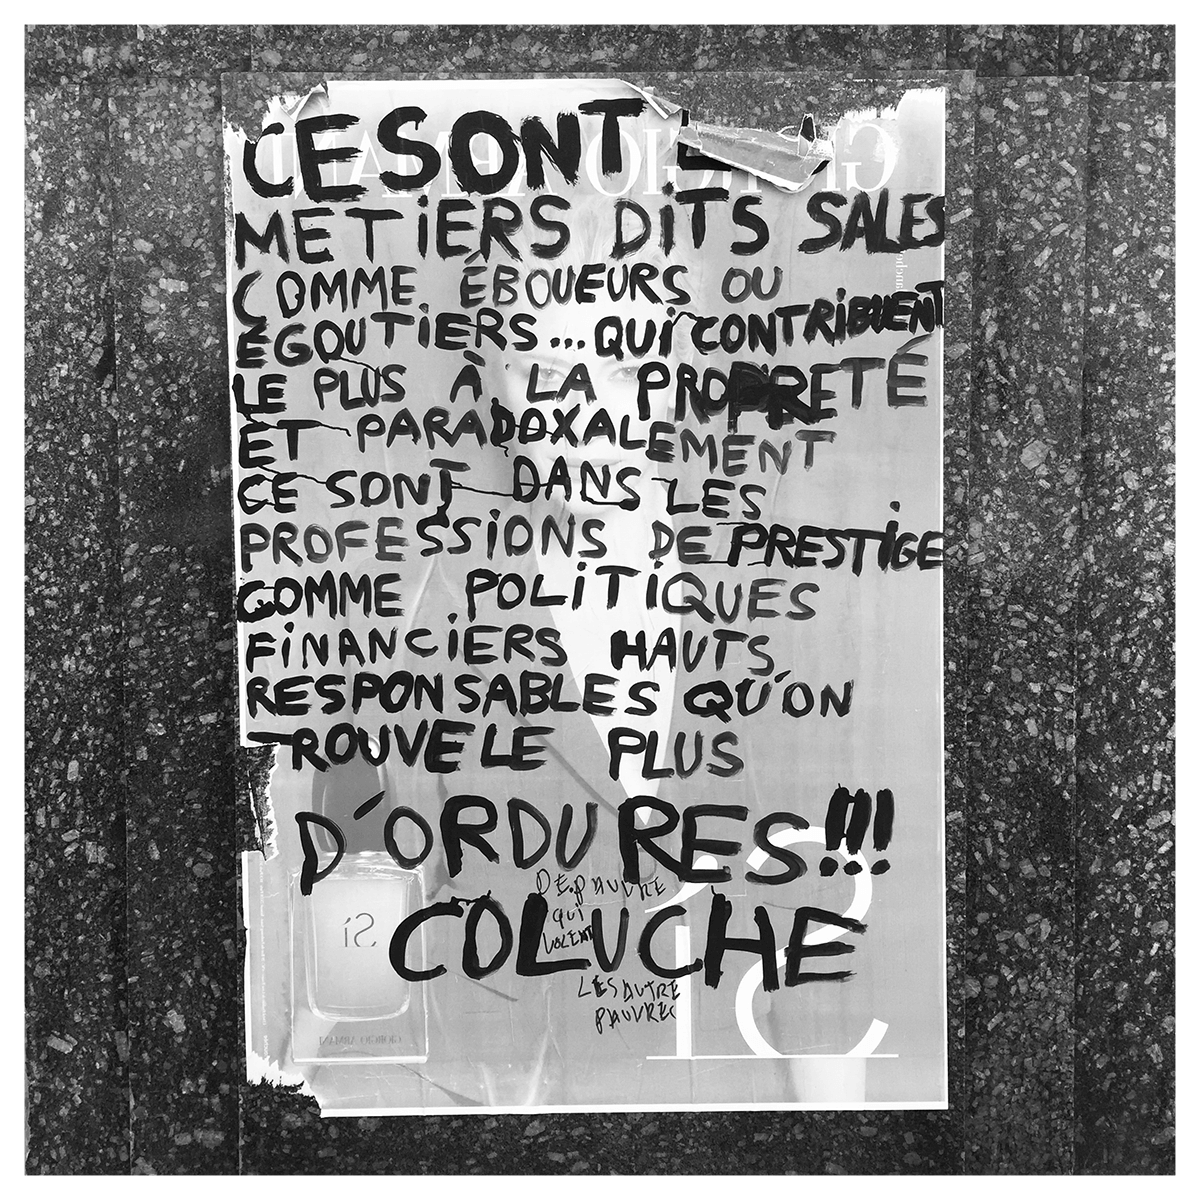 CE SONT
METIERS DITS SALES
COMME ÉBOUEURS OU
ÉGOUTIERS... QUI CONTRIBUENT
LE PLUS À LA PROPRETÉ
ET PARADOXALEMENT
CE SONT DANS LES
PROFESSIONS DE PRESTIGE
COMME POLITIQUES
FINANCIERS HAUTS
RESPONSABLES QU'ON
TROUVE LE PLUS
D'ORDURES!!!
DE PAUVRE
QUI
VOLENT
COLUCHE
LES AUTRE
PAUVRE
Sì
GIORGIO ARMANI
Sì